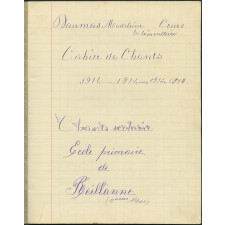 Daumas Madeleine Cours
élémentaire
Cahier de Chants
1914 1915 1916
Chants scolaire
Ecole primaire
de
Reillanne
(Basses Alpes)